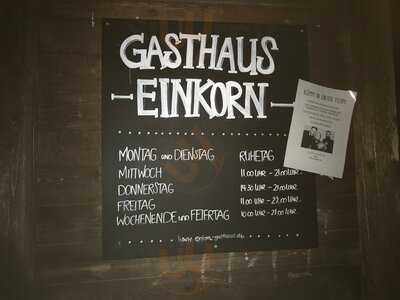 GASTHAUS
EINKORN
MONTAG UND DIENSTAG RUHETAG
MITTWOCH 11.00 UHR - 21.00 UHR
DONNERSTAG 14.30 UHR - 21.00 UHR
FREITAG 11.00 UHR - 22.00 UHR
WOCHENENDE UND FEIERTAG 10.00 UHR - 21.00 UHR
KOMM IN UNSER TEAM!